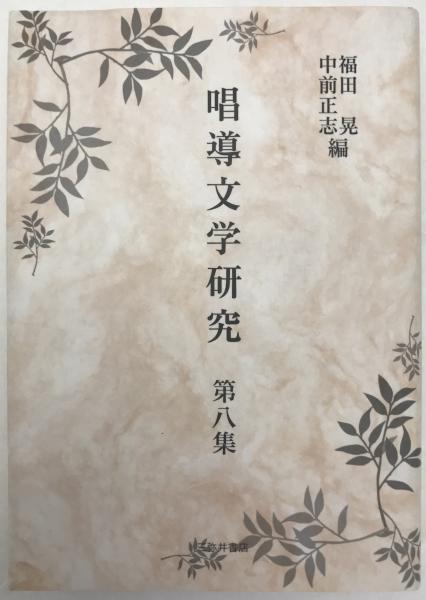 福田 晃
中前正志 編
唱導文学研究 第八集
三弥井書店